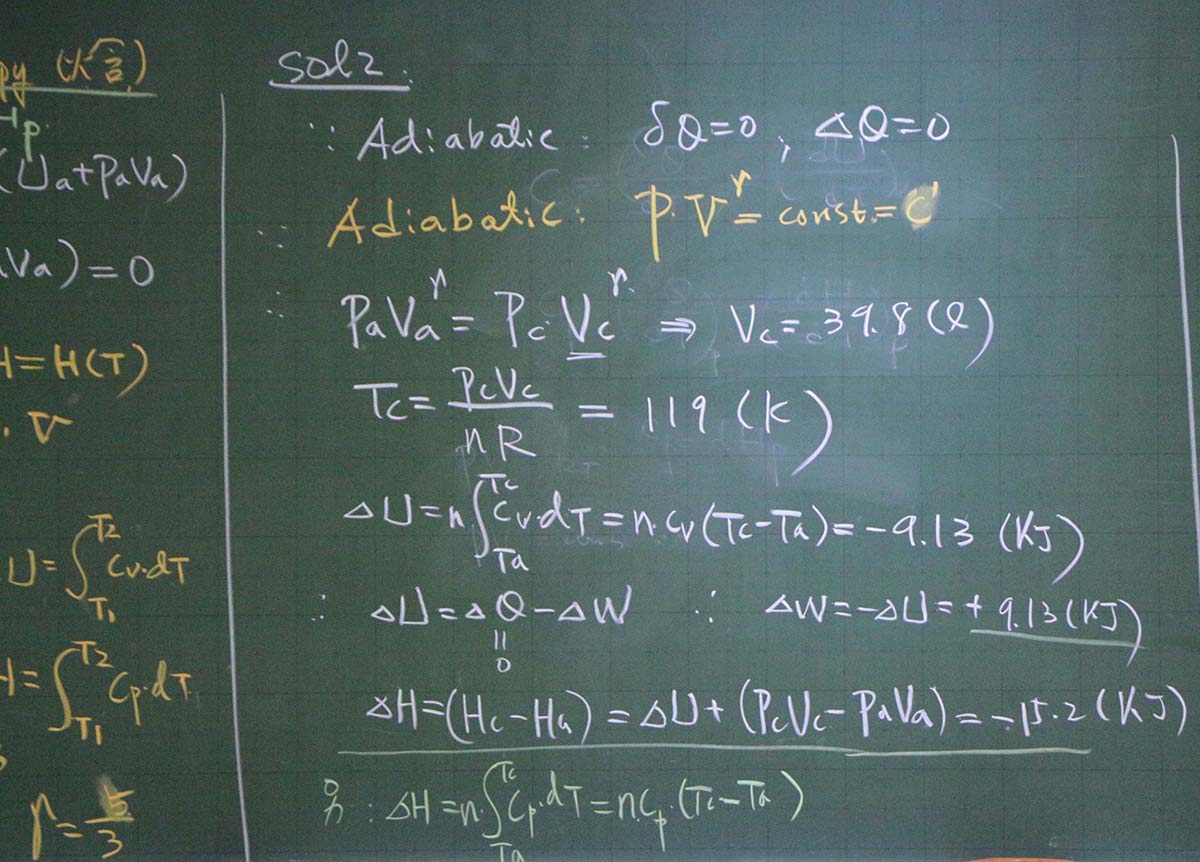 py (大言)
Hp.
(Ua+PaVa)
aVa)=0
H=H(T)
. V
U=∫_{T1}^{T2} Cv.dT
H=∫_{T1}^{T2} Cp.dT
r=5/3
sol2.
∵ Adiabatic: δQ=0, ΔQ=0
∵ Adiabatic: P.V^r=const.=C
∴ PaVa^r=Pc Vc^r. ⇒ Vc=39.8(l)
Tc=PcVc/nR=119 (K)
ΔU=n∫_{Ta}^{Tc} Cv.dT=n.Cv(Tc-Ta)=-9.13 (KJ)
∴ ΔU=ΔQ-ΔW ∴ ΔW=-ΔU=+9.13(KJ)
=
0
ΔH=(Hc-Ha)=ΔU+(PcVc-PaVa)=-15.2(KJ)
ΔH=n.∫_{Ta}^{Tc} Cp.dT=n.Cp.(Tc-Ta)